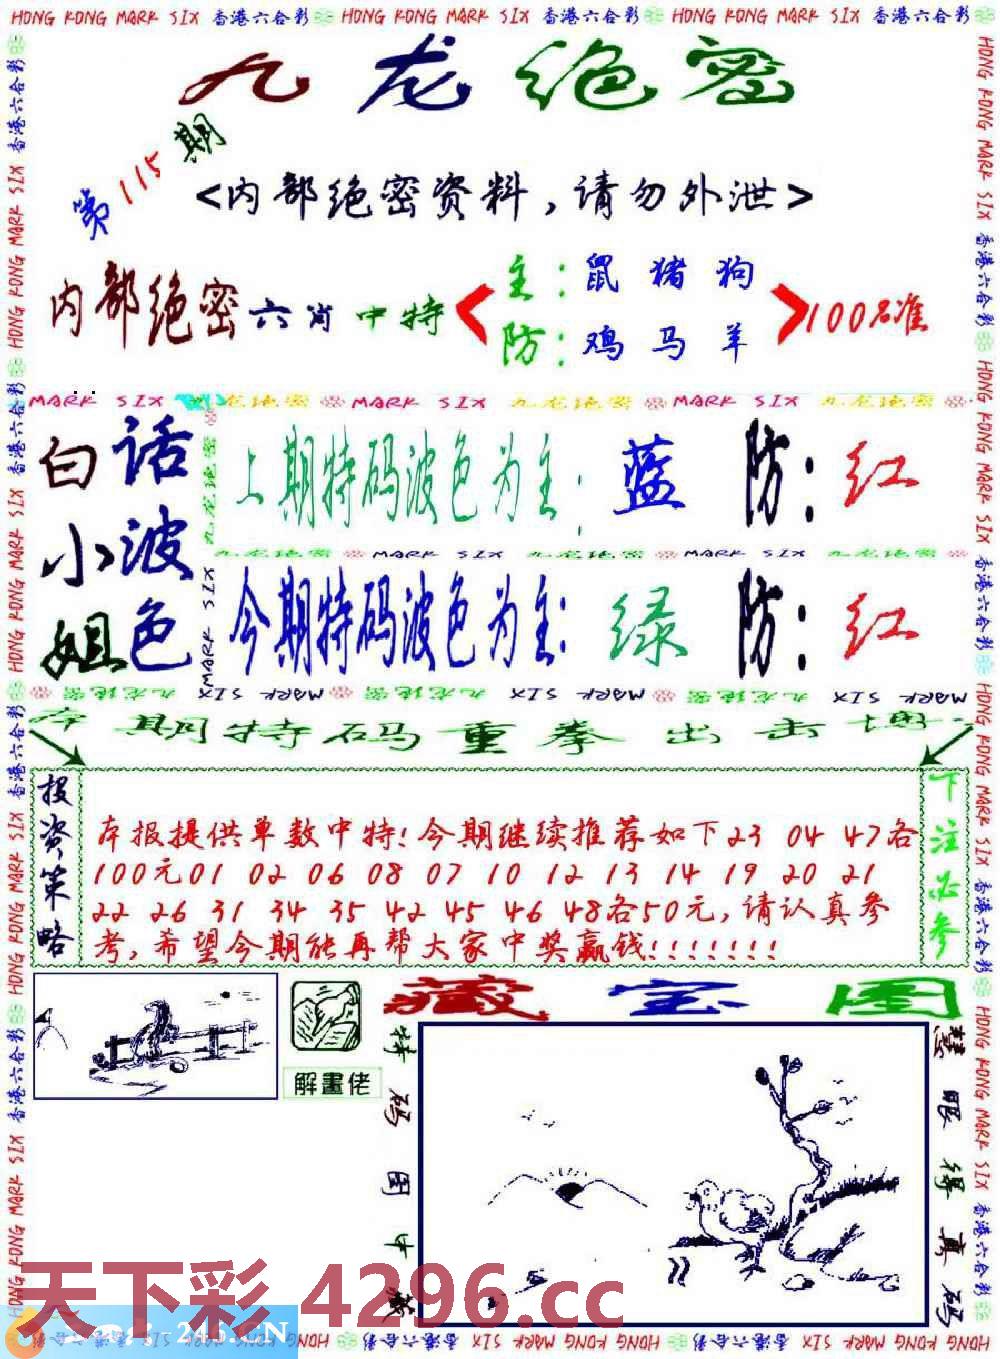 HONG KONG MARK SIX 香港六合彩 HONG KONG MARK SIX 香港六合彩 HONG KONG MARK SIX 香港六合彩
九龙绝密
第115期
<内部绝密资料,请勿外泄>
内部绝密六肖中特
主:鼠 猪 狗
防:鸡 马 羊
100%准
MARK SIX 九龙绝密 MARK SIX 九龙绝密 MARK SIX 九龙绝密
白小姐
话波色
上期特码波色为主:蓝 防:红
九龙绝密 MARK SIX 九龙绝密 MARK SIX 九龙绝密
今期特码波色为主:绿 防:红
本期特码重拳出击
投资策略
本报提供单数中特!今期继续推荐如下23 04 47各
100元01 02 06 08 07 10 12 13 14 19 20 21
22 26 31 34 35 42 45 46 48各50元,请认真参
考,希望今期能再帮大家中奖赢钱!!!!!!!
下注必参
解畫佬
藏宝图
特码图中藏
慧眼得真码
天下彩 4296.cc
246.CN